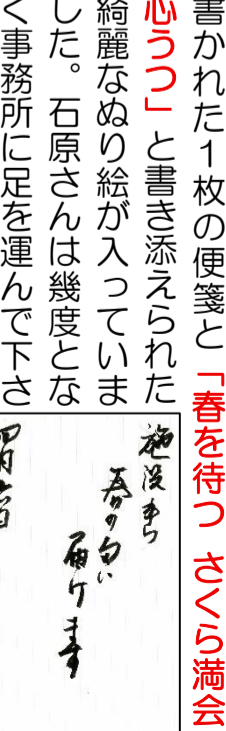 書かれた1枚の便箋と「春を待つ さくら満会
心うつ」と書き添えられた
綺麗なぬり絵が入っていま
した。石原さんは幾度とな
く事務所に足を運んで下さ
施設まち
春の匂い
届けます